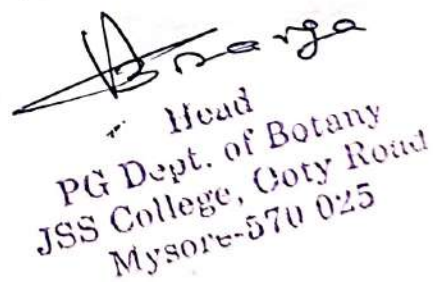 Head
PG Dept. of Botany
JSS College, Ooty Road
Mysore-570 025